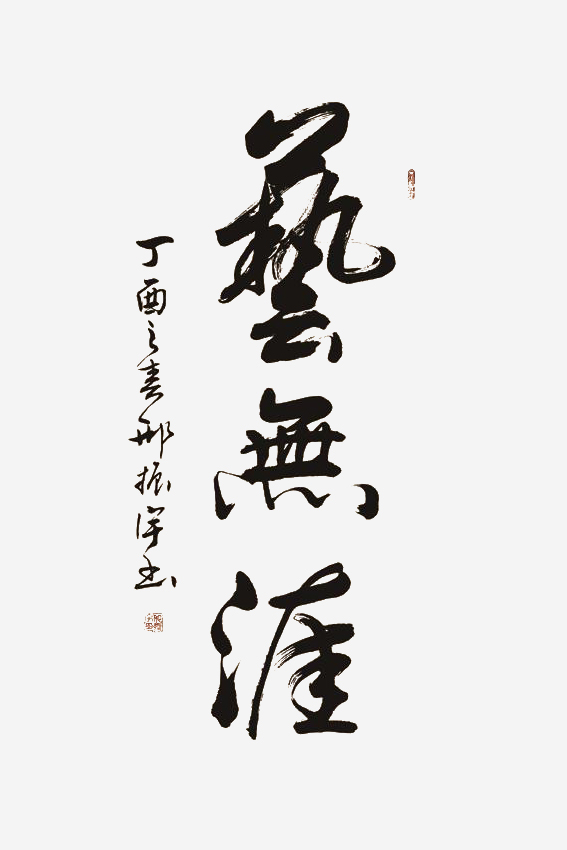 藝無涯
丁酉之春邢振宇书